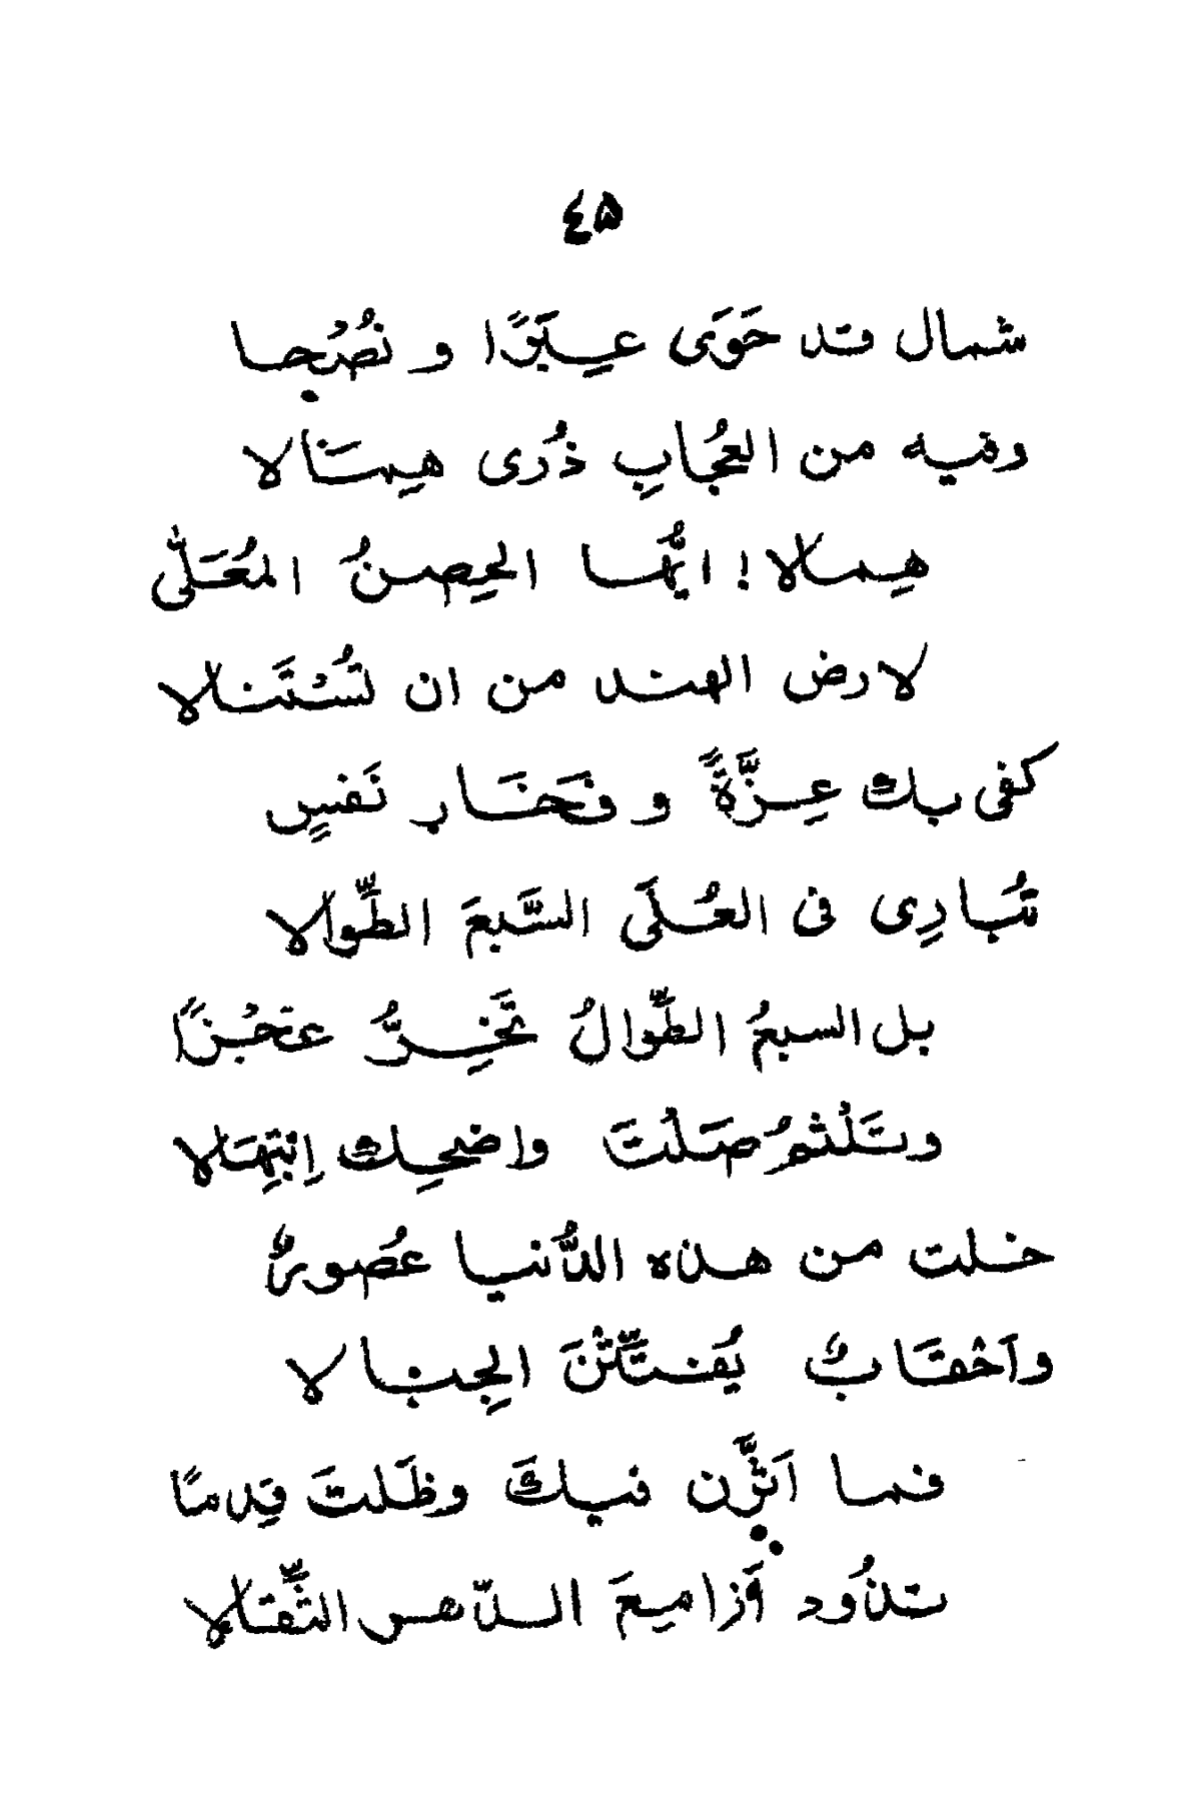 ٤٥
شمال قد حَوَى عِبَرًا و نُصُبحا
وفيه من العُجابِ ذُرى هِمَالا
هِمالا! ايُّها الحِصنُ المُعَلّٰى
لارض الهند من ان تُسْتَنالا
كفى بك عِزَّةً و فَخَار نَفسٍ
تُبادِى فى العُلَى السَّبعَ الطِّوالا
بل السبعُ الطِّوالُ تَخِرُّ عَجْزًا
وتَلْثمُ صَلْتَ واضحِك اِبْتِهَالا
خلت من هذه الدُّنيا عُصورٌ
واَحْقَابٌ يُفَتِّتْنَ الجِبالا
فما اَثَّرن فيكَ وظَلتَ قِدمًا
تذُود اَزاميعَ الدّهر الثِّقالا